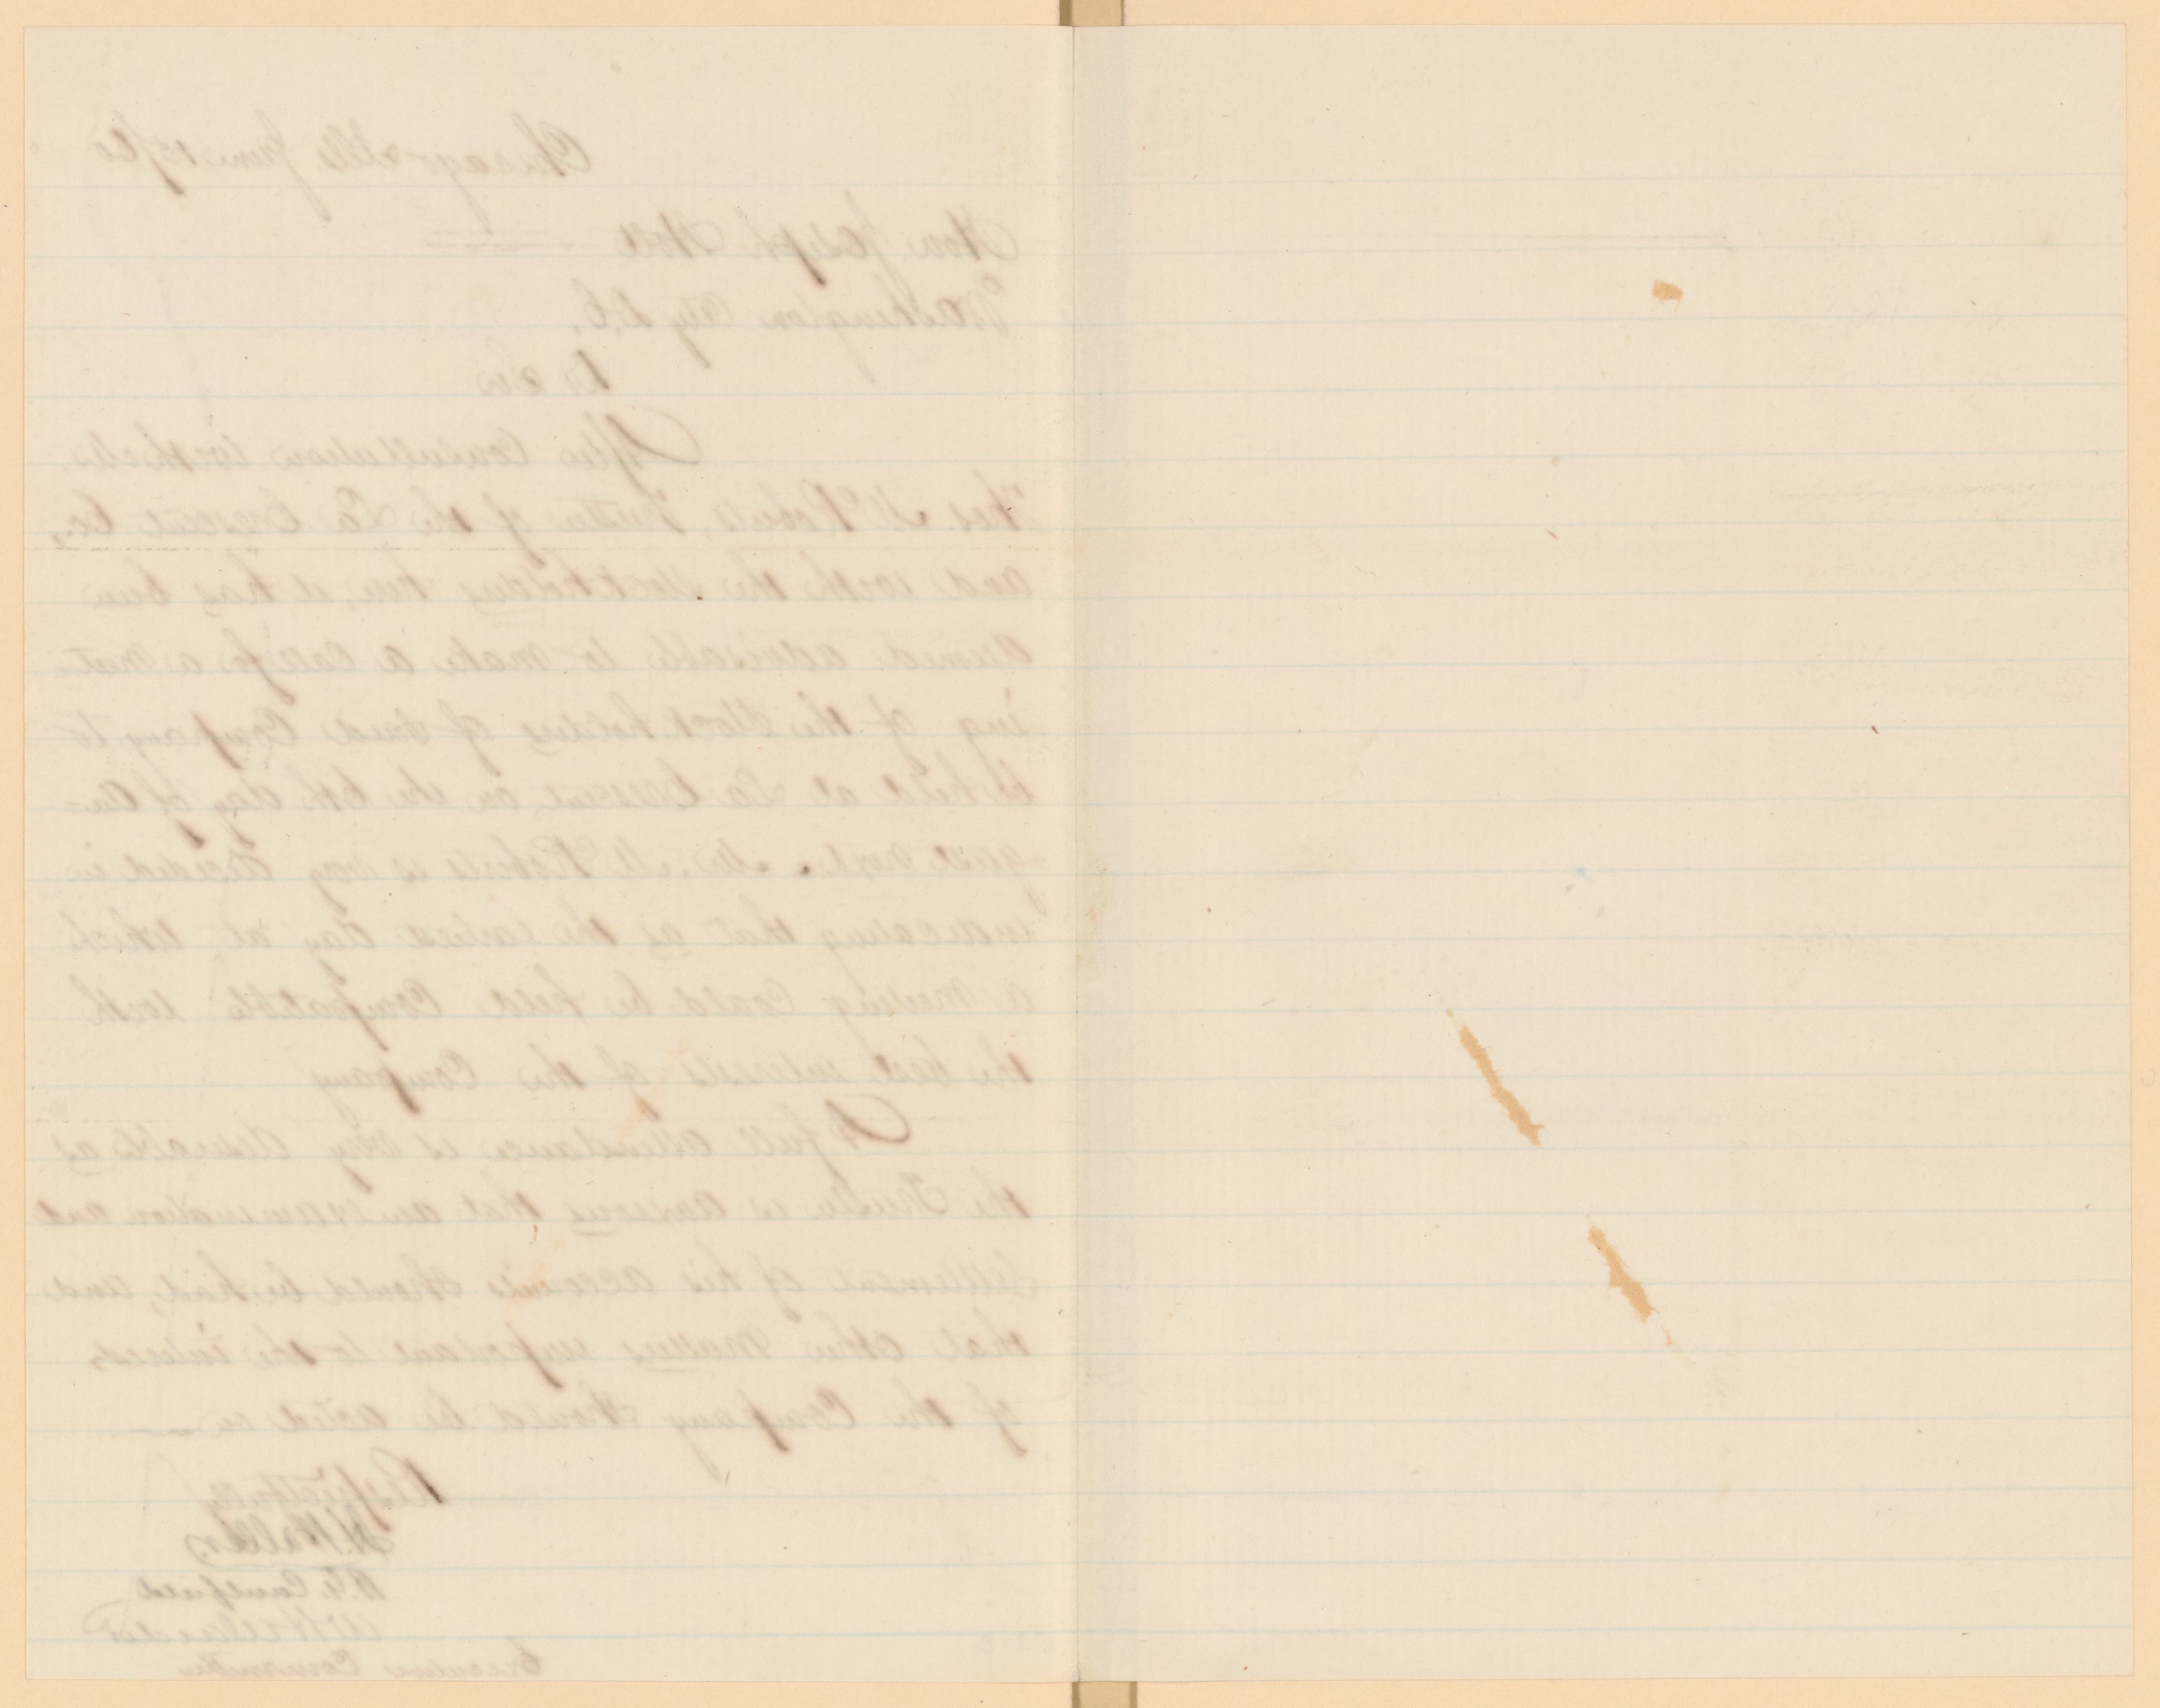 Chicago Ills June 13/60
Hon Joseph Holt
Washington City D.C.
Dr Sir
After Consultation with
Thos McRoberts, Trustee of the La Crescent Co.,
and with the Stockholders here, it has been
deemed advisable to make a call for a meet-
ing of the Stockholders of said Company to
be held at La Crescent on the 6th day of Au-
gust next. Mr. McRoberts is very decided in
indicating that as the earliest day at which
a meeting could be held Compatible with
the best interests of the Company
A full attendance is very desirable as
the Trustee is anxious that an examination and
Settlement of his accounts should be had, and
that other matters important to the interests
of the Company should be acted on
Respectfully
H. Walther
B.F. Caulfield
Executive Committee